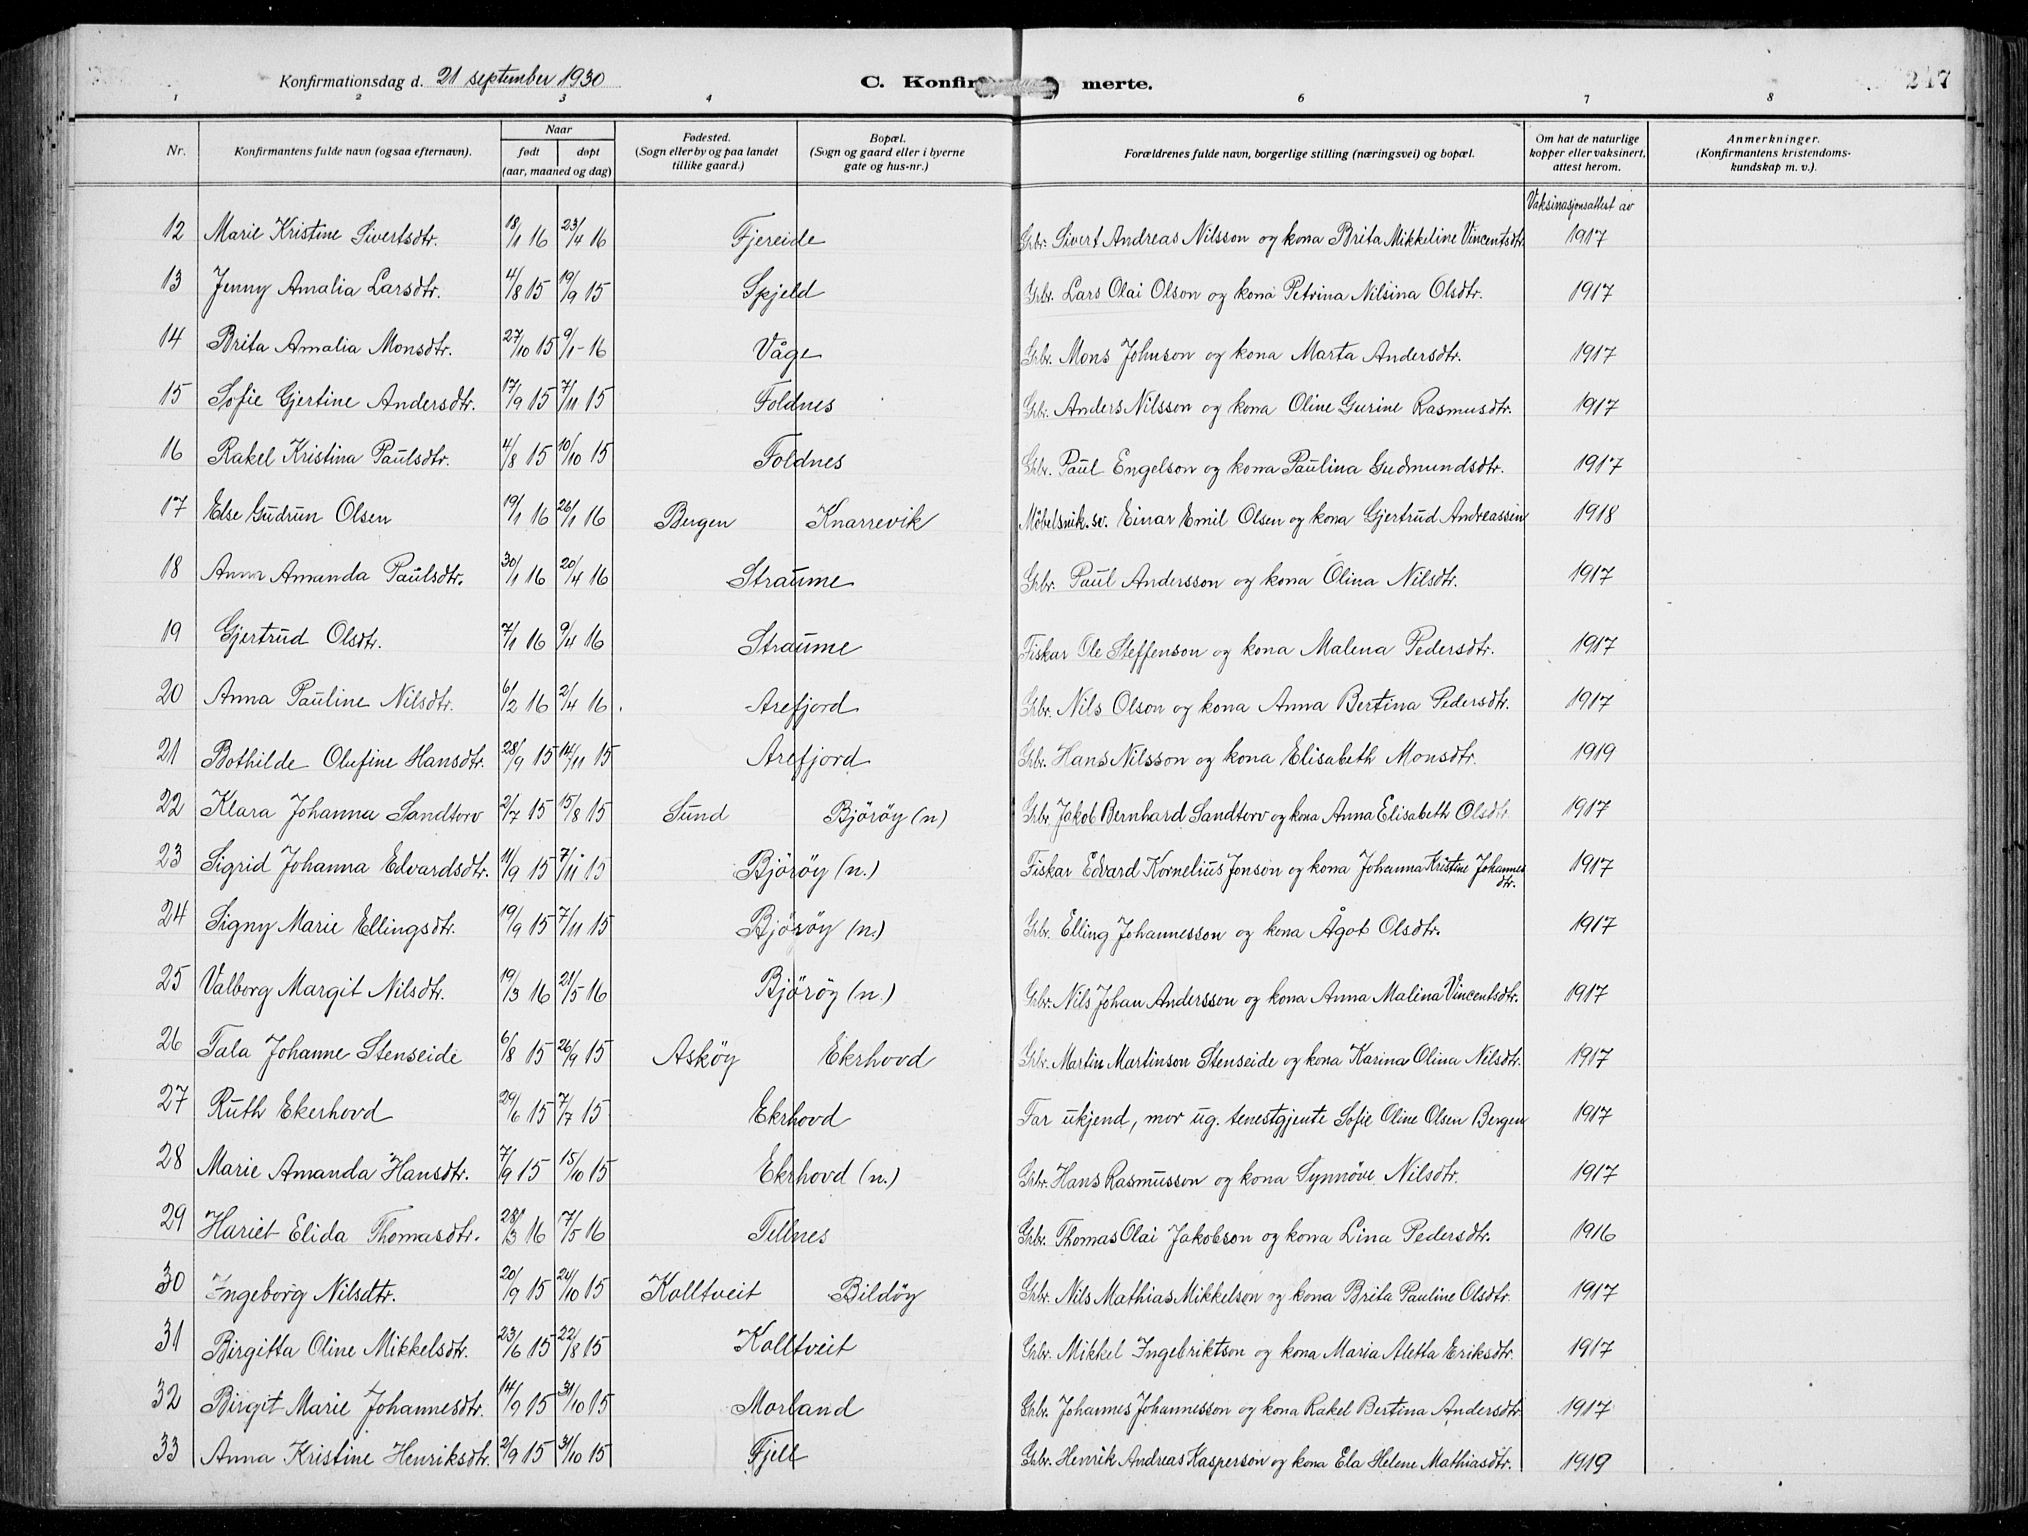 Konfirmationsdag d. 21 september 1930 C. Konfirmerte. 247
1 2 3 4 6 7 8
Nr. Konfirmantens fulde navn (ogsaa efternavn). Naar født døpt (aar, maaned og dag) Fødested. (Sogn eller by og paa landet tillike gaard.) Bopæl. (Sogn og gaard eller i byerne gate og hus-nr.) Forældrenes fulde navn, borgerlige stilling (næringsvei) og bopæl. Om hat de naturlige kopper eller vaksinert, attest herom. Anmerkninger. (Konfirmantens kristendomskundskap m. v.).
Vaksinasjonsattest av
12 Marie Kristine Sivertsdtr. 18/1 16 23/4 16 Fjereide Grbr. Sivert Andreas Nilsson og kona Brita Mikkeline Vincentsdtr. 1917
13 Jenny Amalia Larsdtr. 4/8 15 19/9 15 Spjeld Grbr. Lars Olai Olson og kona Petrina Nilsina Olsdtr. 1917
14 Brita Amalia Monsdtr. 27/10 15 9/1-16 Våge Grbr. Mons Johnson og kona Marta Andersdtr. 1917
15 Sofie Gjertine Andersdtr. 17/9 15 7/11 15 Foldnes Grbr. Anders Nilsson og kona Oline Gurine Rasmusdtr. 1917
16 Rakel Kristina Paulsdtr. 4/8 15 10/10 15 Foldnes Grbr. Paul Engelson og kona Paulina Gudmundsdtr. 1917
17 Else Gudrun Olsen 19/1 16 26/1 16 Bergen Knarrevik Møbelsnik.sv. Einar Emil Olsen og kona Gjertrud Andreassen 1918
18 Anna Amanda Paulsdtr. 30/1 16 20/4 16 Straume Grbr. Paul Andersson og kona Olina Nilsdtr. 1917
19 Gjertrud Olsdtr. 7/1 16 9/4 16 Straume Fiskar Ole Steffenson og kona Malena Pedersdtr. 1917
20 Anna Pauline Nilsdtr. 6/2 16 2/4 16. Arefjord Grbr. Nils Olson og kona Anna Bertina Pedersdtr. 1917
21 Bothilde Olufine Hansdtr. 28/9 15 14/11 15 Arefjord Grbr. Hans Nilsson og kona Elisabeth Monsdtr. 1919
22 Klara Johanna Sandtorv 2/7 15 15/8 15 Sund Bjørøy (n) Grbr. Jakob Bernhard Sandtorv og kona Anna Elisabeth Olsdtr. 1917
23 Sigrid Johanna Edvardsdtr. 11/9 15 7/11 15 Bjørøy (n.) Fiskar Edvard Kornelius Jonson og kona Johanna Kristine Johannesdtr. 1917
24 Signy Marie Ellingsdtr. 19/9 15 7/11 15 Bjørøy (n.) Grbr. Elling Johannesson og kona Ågot Olsdtr. 1917
25 Valborg Margit Nilsdtr. 19/3 16 21/5 16 Bjørøy (n.) Grbr. Nils Johan Andersson og kona Anna Malina Vincentsdtr. 1917
26 Tala Johanne Stenseide 6/8 15 26/9 15 Askøy Ekrhovd Grbr. Martin Martinson Stenseide og kona Karina Olina Nilsdtr. 1917
27 Ruth Ekerhovd 29/6 15 7/7 15 Ekrhovd Far ukjend, mor ug. tenestgjente Sofie Oline Olsen Bergen 1917
28 Marie Amanda Hansdtr. 7/9 15 15/10 15 Ekrhovd (n.) Grbr. Hans Rasmusson og kona Synnøve Nilsdtr. 1917
29 Hariet Elida Thomasdtr. 28/3 16 7/5 16 Tellnes Grbr. Thomas Olai Jakobson og kona Lina Pedersdtr. 1916
30 Ingeborg Nilsdtr. 20/9 15 24/10 15 Kolltveit Bildøy Grbr. Nils Mathias Mikkelson og kona Brita Pauline Olsdtr. 1917
31 Birgitta Oline Mikkelsdtr. 23/6 15 22/8 15 Kolltveit Grbr. Mikkel Ingebriktson og kona Maria Aletta Eriksdtr. 1917
32 Birgit Marie Johannesdtr. 14/9 15 31/10 15 Morland Grbr. Johannes Johannesson og kona Rakel Bertina Andersdtr. 1917
33 Anna Kristine Henriksdtr. 2/9 15 31/10 15 Fjell Grbr. Henrik Andreas Kasperson og kona Ela Helene Mathiasdtr. 1919